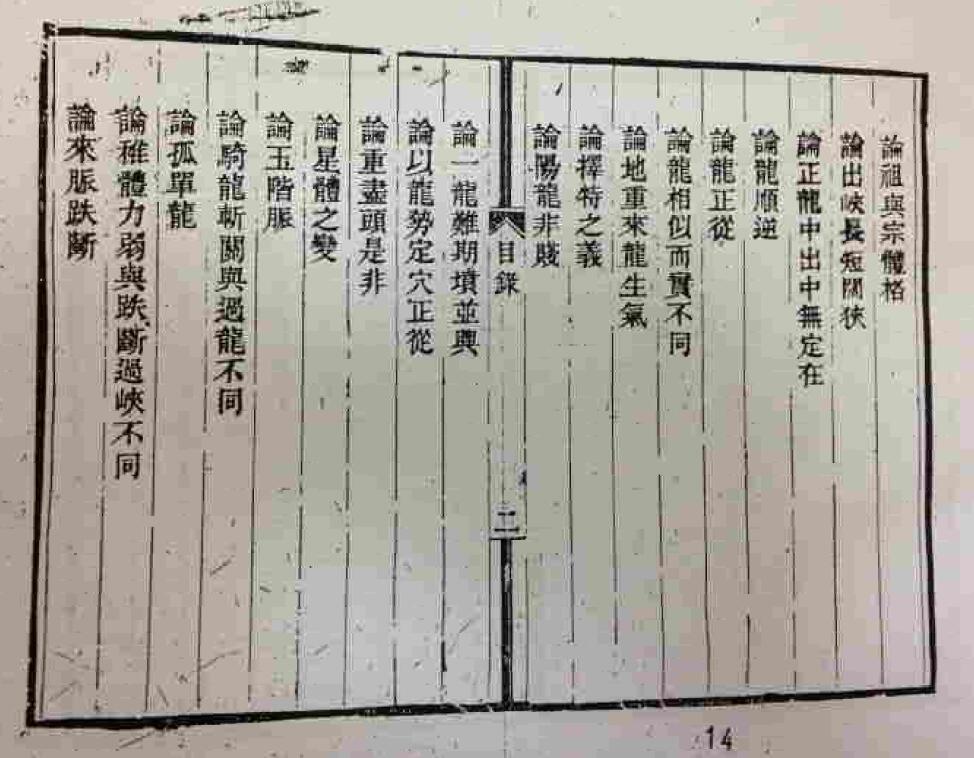 論祖與宗體格
論出峽長短闊狹
論正龍中出中無定在
論龍順逆
論龍正從
論龍相似而實不同
論地重來龍生氣
論擇特之義
論陽龍非賤
目錄
二
論一龍難期墳並興
論以龍勢定穴正從
論重盡頭是非
論星體之變
論玉階脈
論騎龍斬關與過龍不同
論孤單龍
論稚體力弱與跌斷過峽不同
論來脈跌斷
14